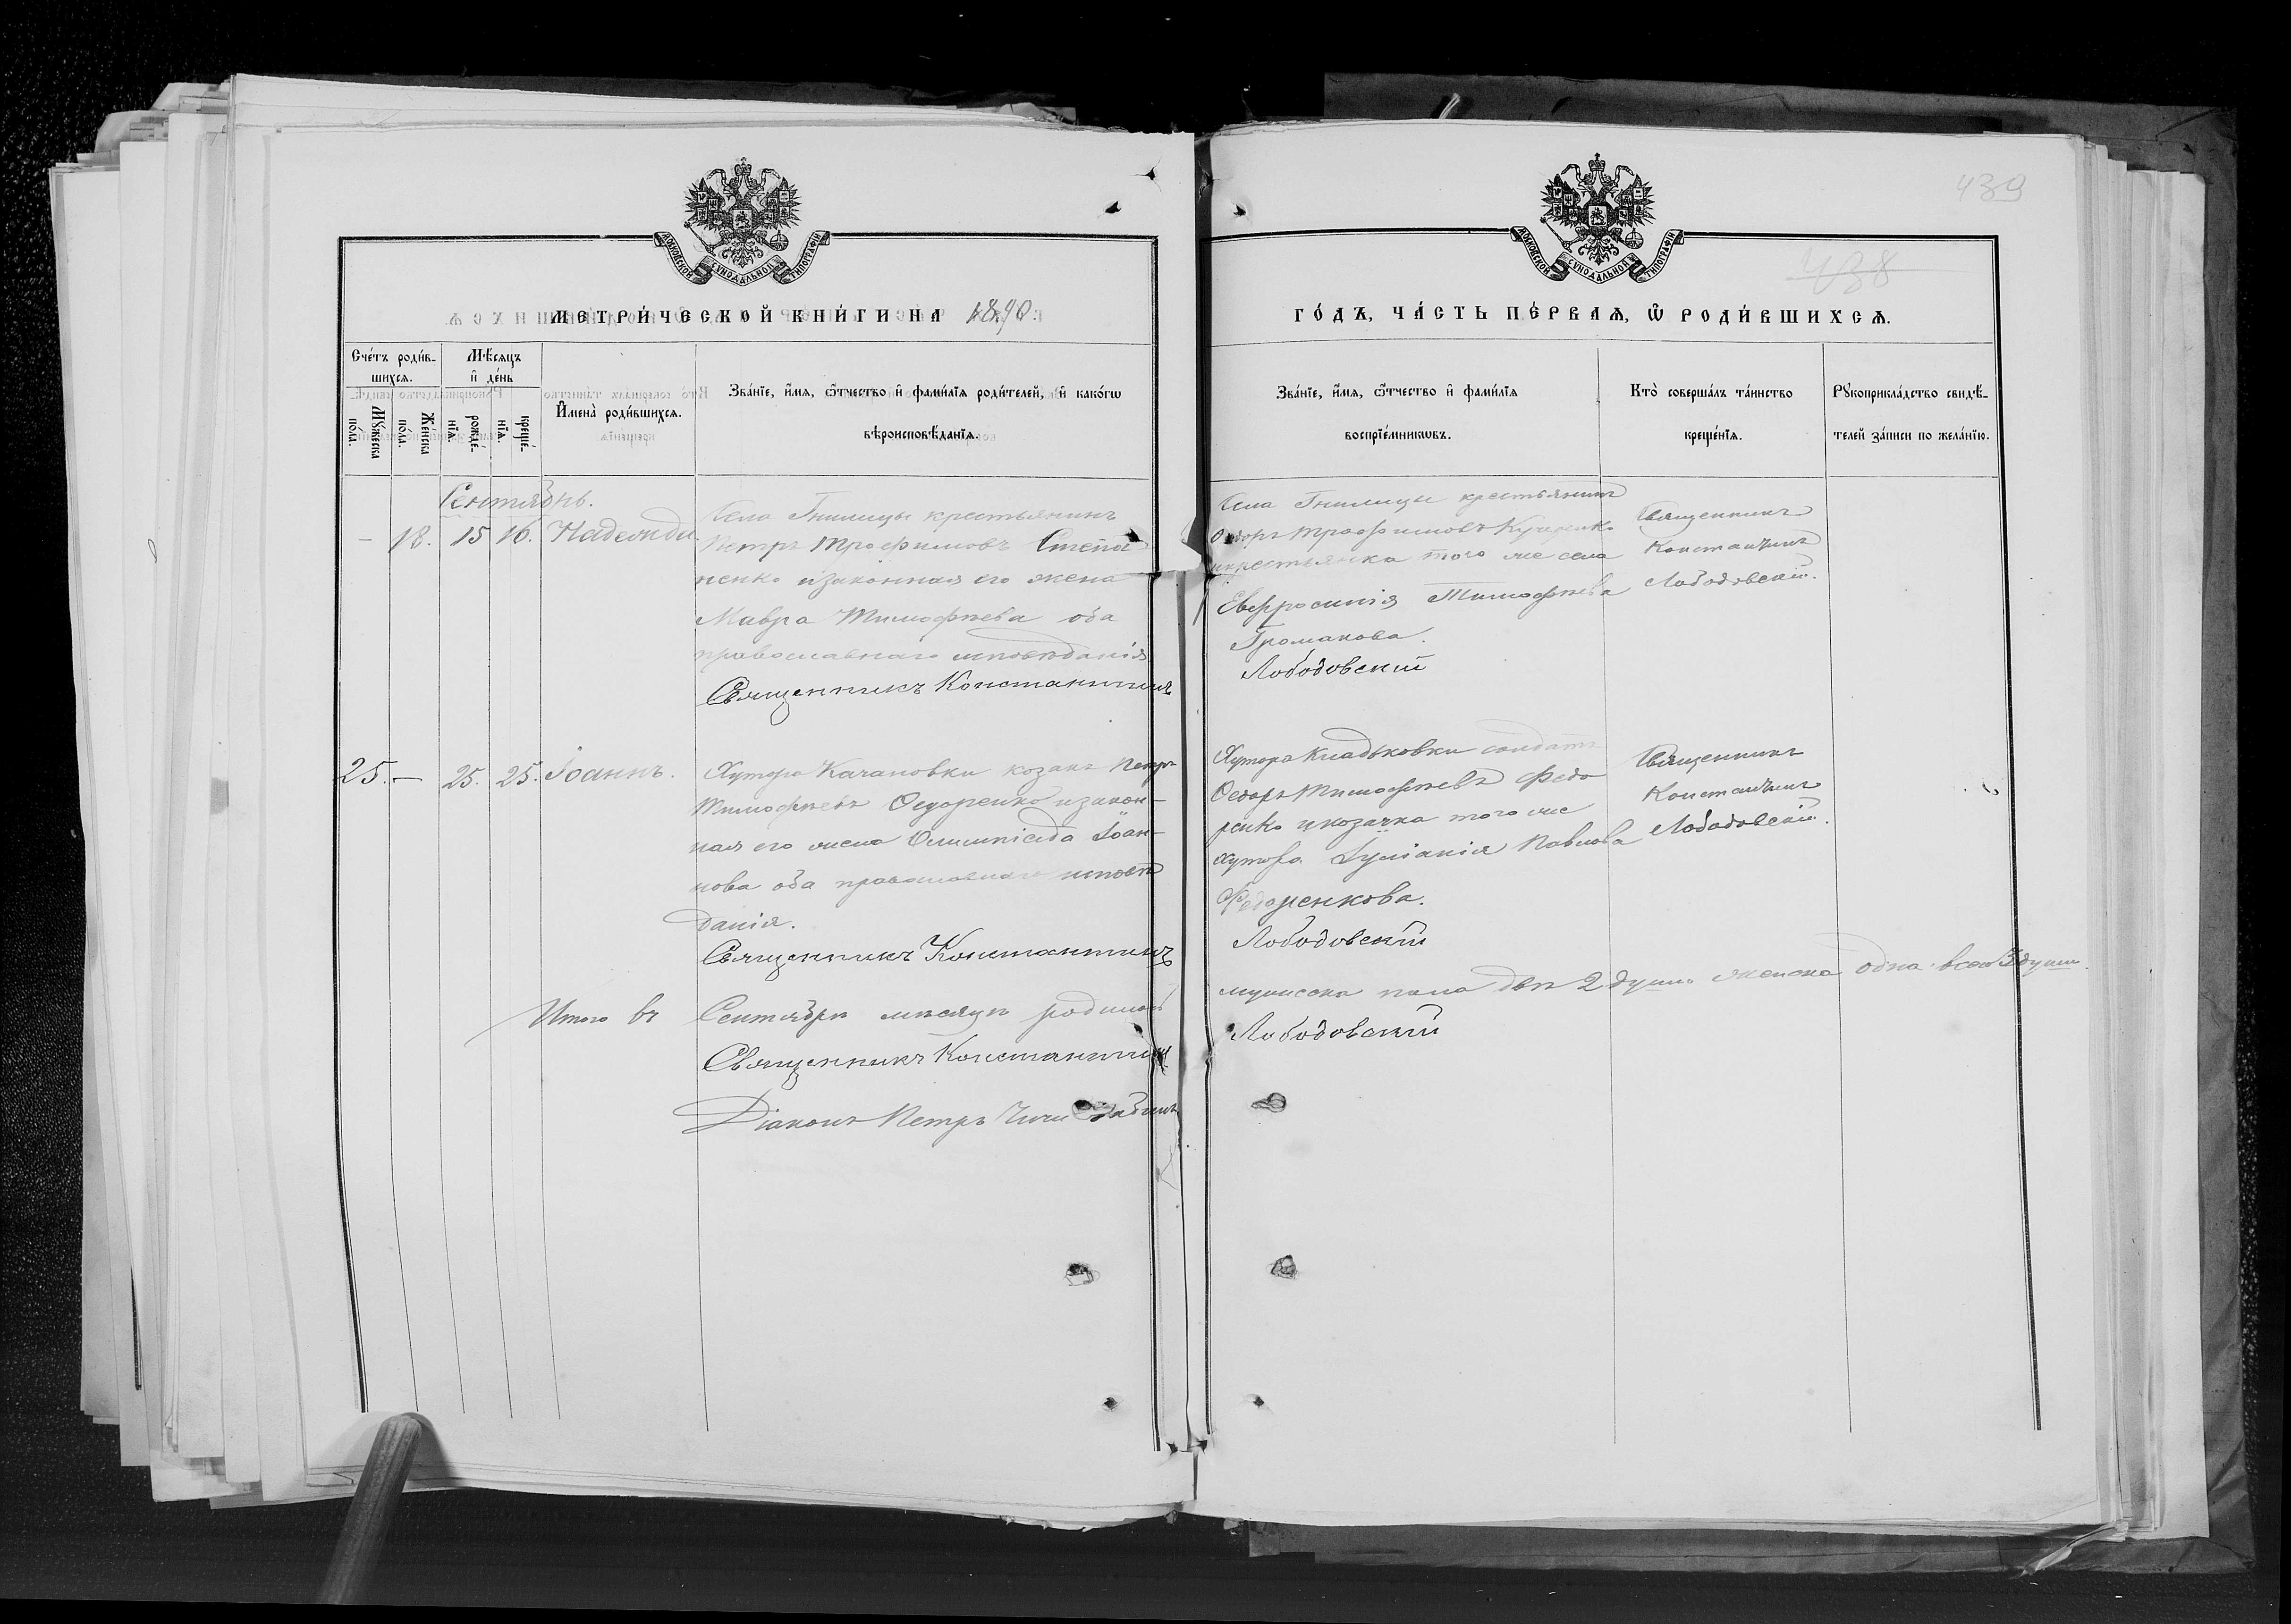 МОСКОВСКОЙ СѴНОДАЛЬНОЙ ТИПОГРАФІИ
МЕТРИ́ЧЕСКОЙ КНИ́ГИ НА 1890.
Сче́тъ роди́в-
шихсѧ.
Мꙋ́жеска
по́ла.
Же́нска
по́ла.
Мѣ́сѧцъ
и҆ де́нь
рожде́-
нїѧ.
креще́-
нїѧ.
И҆мена̀ роди́вшихсѧ.
Зва́нїе, и҆́мѧ, ѻ҆́тчество и҆ фами́лїѧ роди́телей, и҆ како́гѡ
вѣроисповѣ́данїѧ.
Сентябрь.
— 18. 15 16. Надежда
Села Гнилицы крестьянинъ
Петръ Трофимовъ Степа
ненко изаконная его жена
Мавра Тимофѣева оба
православнаго исповѣданія
Священникъ Константинъ
25. — 25. 25. Іоаннъ.
Хутора Качановки козакъ Петръ
Тимофѣевъ Ѳедоренко изакон-
ная его жена Олимпіада Іоан-
нова оба православнаго исповѣ
данія.
Священникъ Константинъ
Итого въ Сентябрѣ мѣсяцѣ родилось
Священникъ Константинъ
Діаконъ Петръ
439
438
МОСКОВСКОЙ СѴНОДАЛЬНОЙ ТИПОГРАФІИ
ГО́ДЪ, ЧА́СТЬ ПЕ́РВАѦ, Ѡ҆ РОДИ́ВШИХСѦ.
Зва́нїе, и҆́мѧ, ѻ҆́тчество и҆ фами́лїѧ
воспрїе́мникѡвъ.
Кто̀ соверша́лъ та́инство
креще́нїѧ.
Рꙋкоприкла́дство свидѣ́-
телей за́писи по жела́нїю.
Села Гнилицы крестьянинъ
Ѳедоръ Трофимовъ
икрестьянка того же села
Евфросинія Тимофѣева
Громакова.
Лободовскій
Священникъ
Константинъ
Лободовскій.
Хутора Кладьковки солдатъ
Ѳедоръ Тимофѣевъ Федо
ренко икозачка того же
хутора Іуліанія Павлова
Федоренкова.
Лободовскій
Священникъ
Константинъ
Лободовскій.
мужеска пола двѣ 2 души женска одна. всего 3 души.
Лободовскій